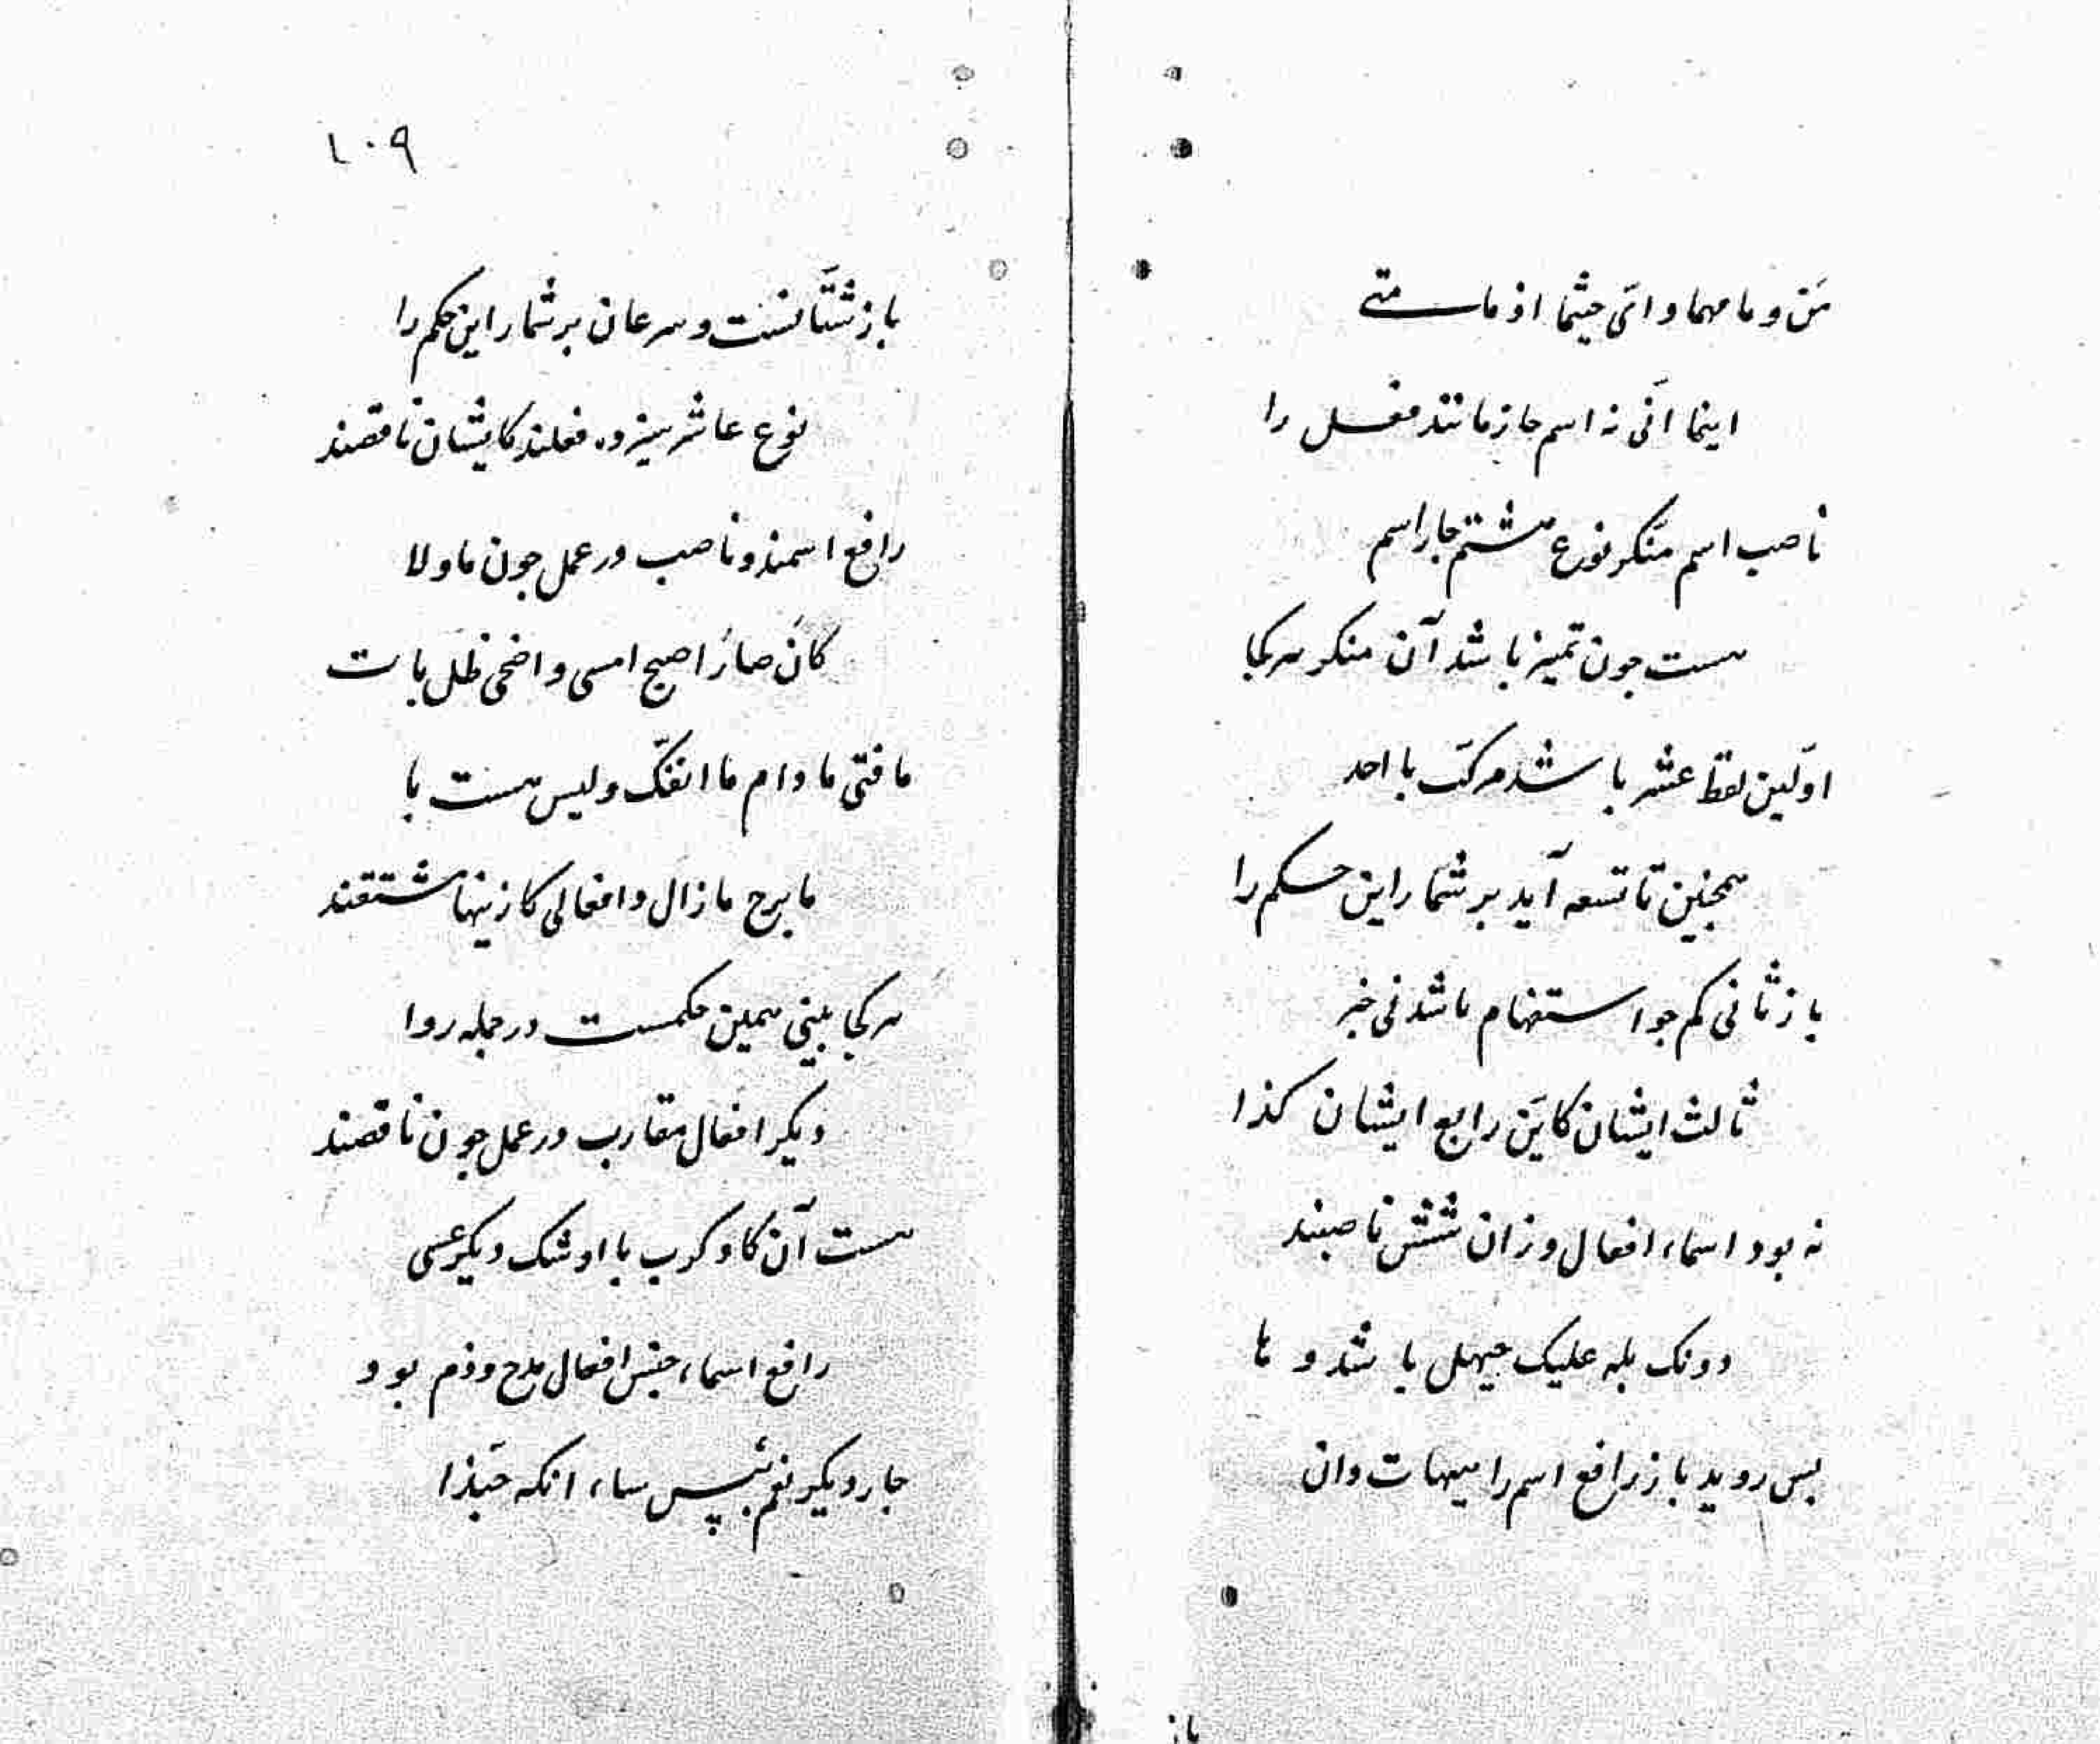 مَن و ما مهما و ایّ حیثما اذ ما متے
اینما انّی نه اسم جازمانند مفعل را
ناصب اسم منکر نوع هشتم جار اسم
هست چون تمیز باشد آن منکر هر کجا
اوّلین لفظ عشر باشد مرکّب با احد
همچنین تا تسعه آید بر شمار این حکم را
باز ثانی کم جو استفهام باشد نی خبر
ثالث ایشان کایّن رابع ایشان کذا
نه بود اسماء افعال وزان شش ناصبند
دونک بله علیک حیهل باشد و ها
بس روید باز رافع اسم را هیهات دان
باز
۱۰۹
باز شتّانست و سرعان بر شمار این حکم را
نوع عاشر سیزده فعلند کایشان ناقصند
رافع اسمند و ناصب در عمل چون ما و لا
کانَ صارَ اصبح امسی و اضحی ظلّ بات
ما فتی ما دام ما انفکّ و لیس هست با
ما برح ما زال و افعالی کازینها مشتقند
هر کجا بینی همین حکمست در جمله روا
دیکر افعال مقارب در عمل چون ناقصند
هست آن کاد کرب با اوشک دیکر عسی
رافع اسماء جنس افعال مدح و ذم بود
چار دیکر نعم بئس ساء انکه حبّذا